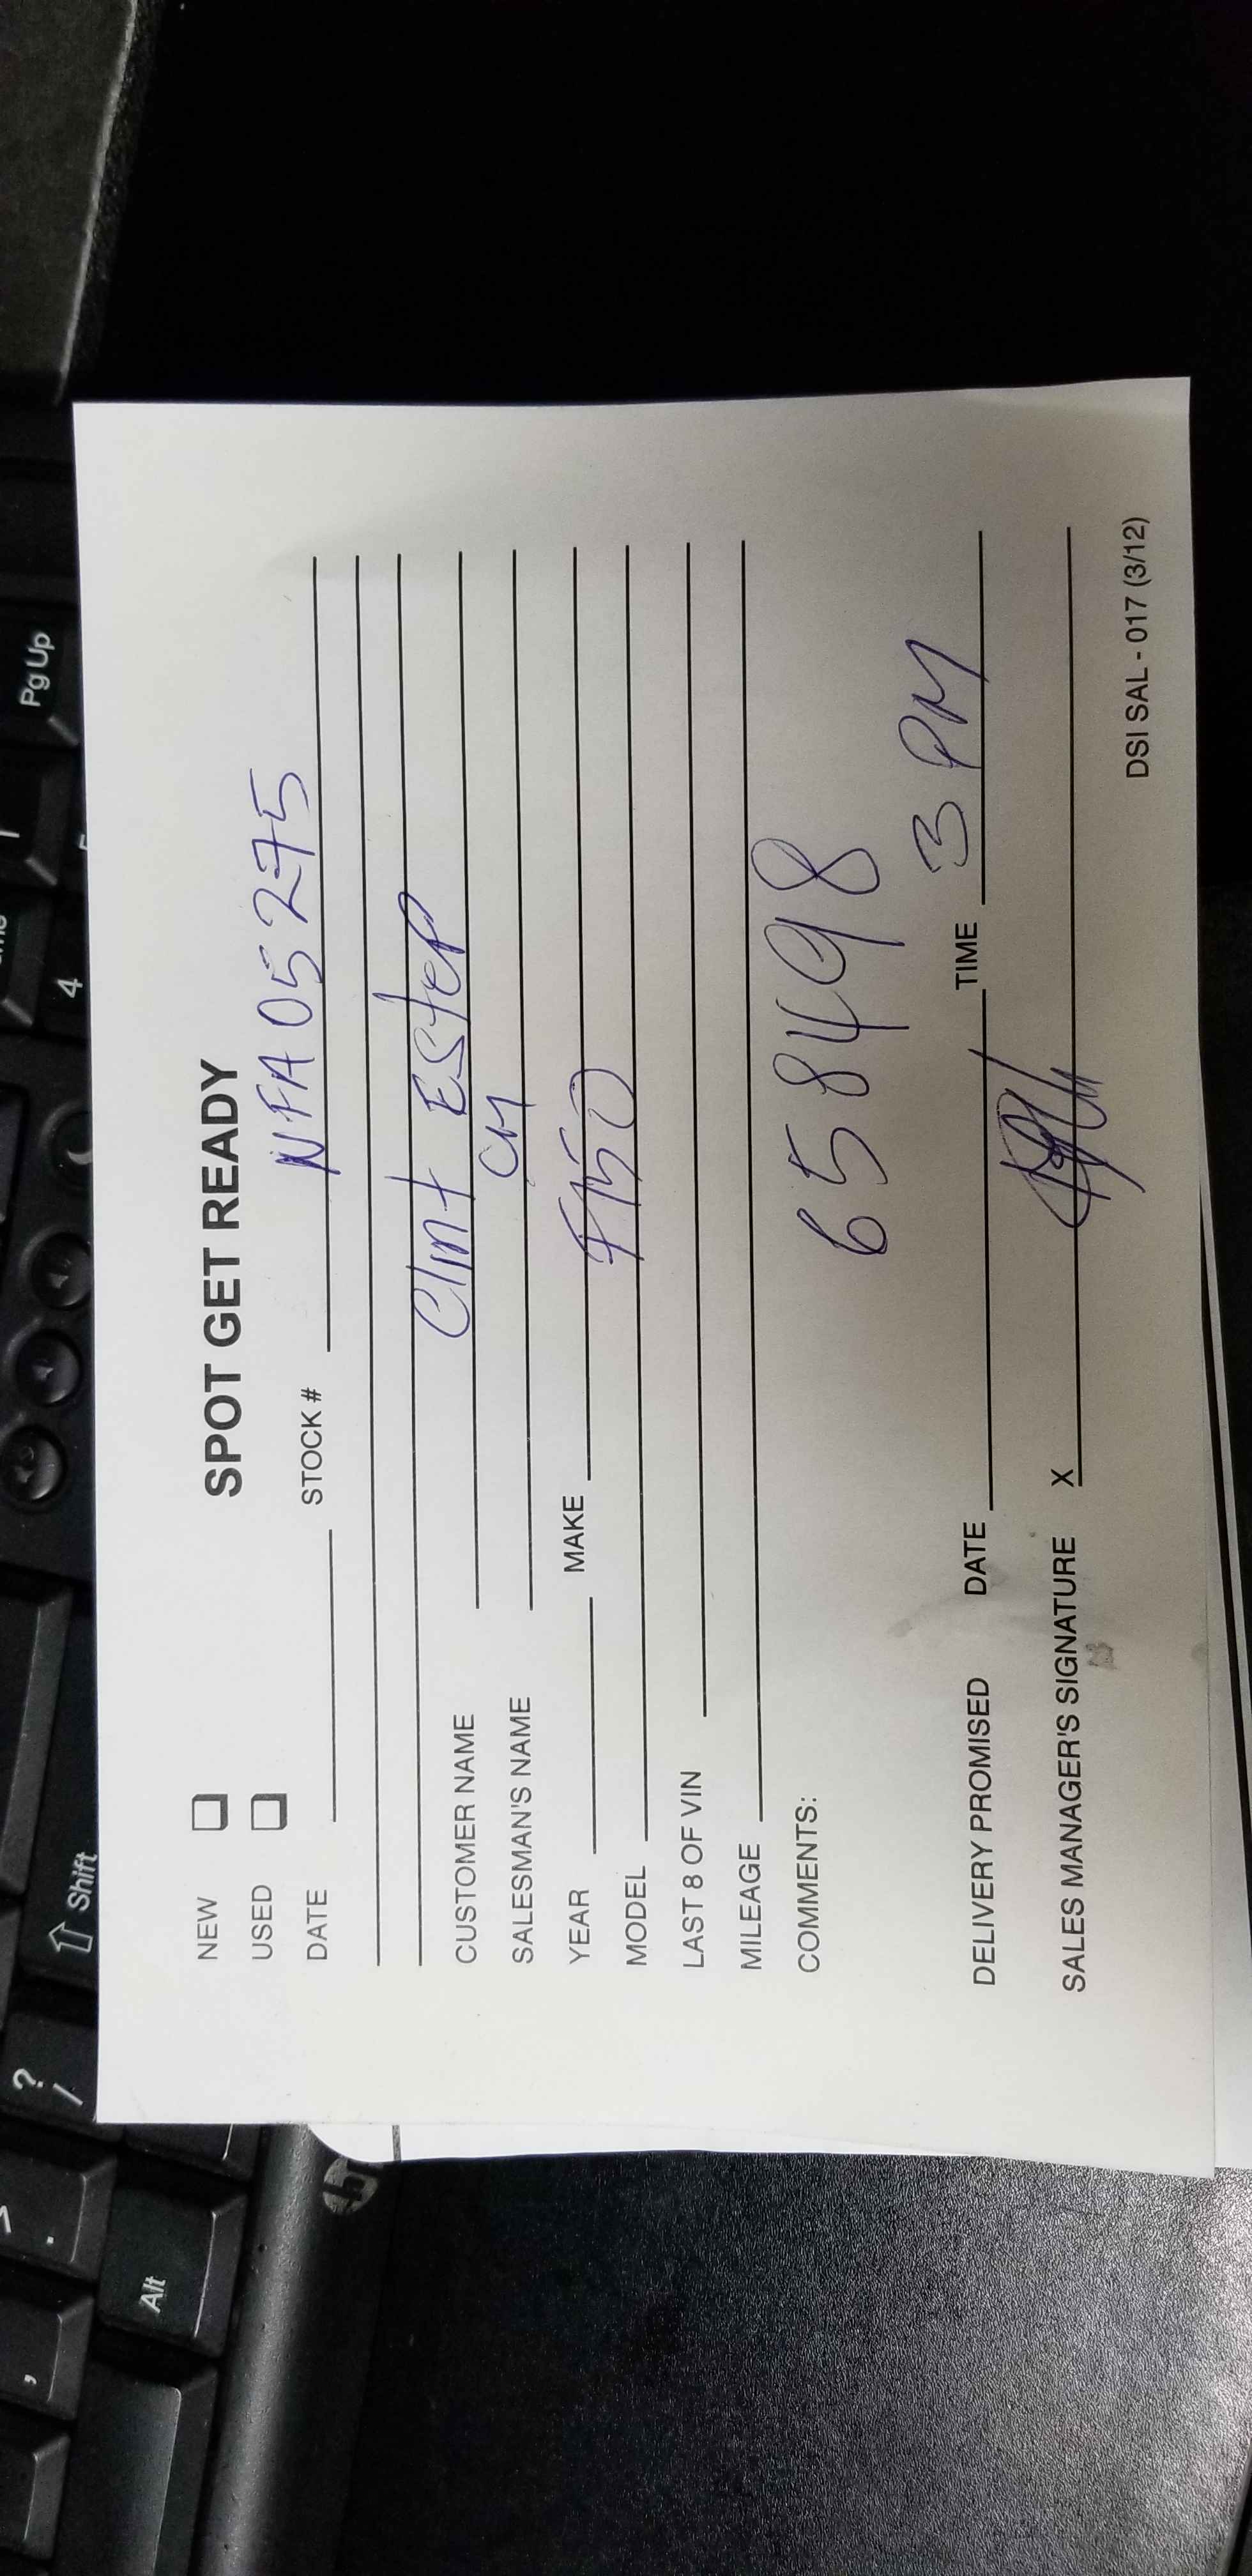 SPOT GET READY
NEW
USED
DATE STOCK # NFA05275
CUSTOMER NAME Clint Estep
SALESMAN'S NAME CM
YEAR MAKE F150
MODEL
LAST 8 OF VIN
MILEAGE
COMMENTS:
658498
DELIVERY PROMISED DATE TIME 3 PM
SALES MANAGER'S SIGNATURE X
DSI SAL - 017 (3/12)
Pg Up
4
Shift
?
/
>
.
,
Alt
hp